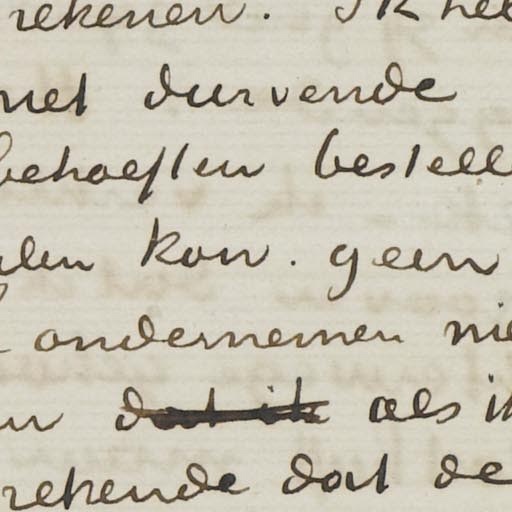 rekenen. Ik heb
niet durvende
behoeften bestell
alen kon. geen
ondernemen nie
en dat ik als ik
rekende dat de